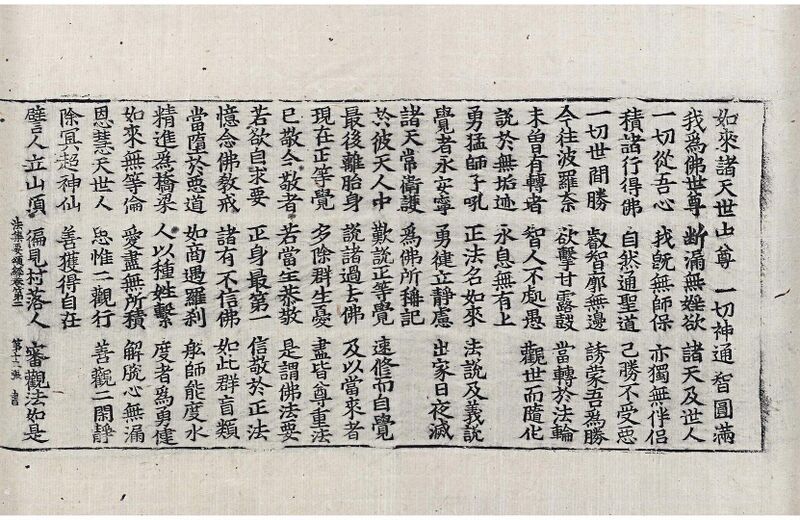 如來諸天世尊 一切神通智圓滿
我為佛世尊 断漏無婬欲 諸天及世人
一切從吾心 我既無師保 亦獨無伴侶
積諸行得佛 自然通聖道 己勝不受惡
一切世間勝 叡智廓無邊 誘蒙吾為勝
今往波羅奈 欲擊甘露鼓 當轉於法輪
未曾有轉者 智人不處愚 觀世而隨化
說於無垢迹 永息無有上
勇猛師子吼 正法名如來 法說及義說
覺者永安寧 勇健立靜慮 出家日夜滅
諸天常衛護 為佛所稱記
於彼天人中 歎說正等覺 速修而自覺
最後離胎身 說諸過去佛 及以當來者
現在正等覺 多除群生憂 盡皆尊重法
已敬今敬者 若當生恭敬 是謂佛法要
若欲自求要 正身最第一 信敬於正法
憶念佛教戒 諸有不信佛 如此群盲類
當墮於惡道 如商遇羅刹 舩師能度水
精進為橋梁 人以種姓繫 度者為勇健
如來無等倫 愛盡無所積 解脫心無漏
恩慧天世人 思惟二觀行 善觀二閑靜
除冥超神仙 善獲得自在
法集要頌經卷第二 第十二張
譬人立山頂 徧見村落人 審觀法如是